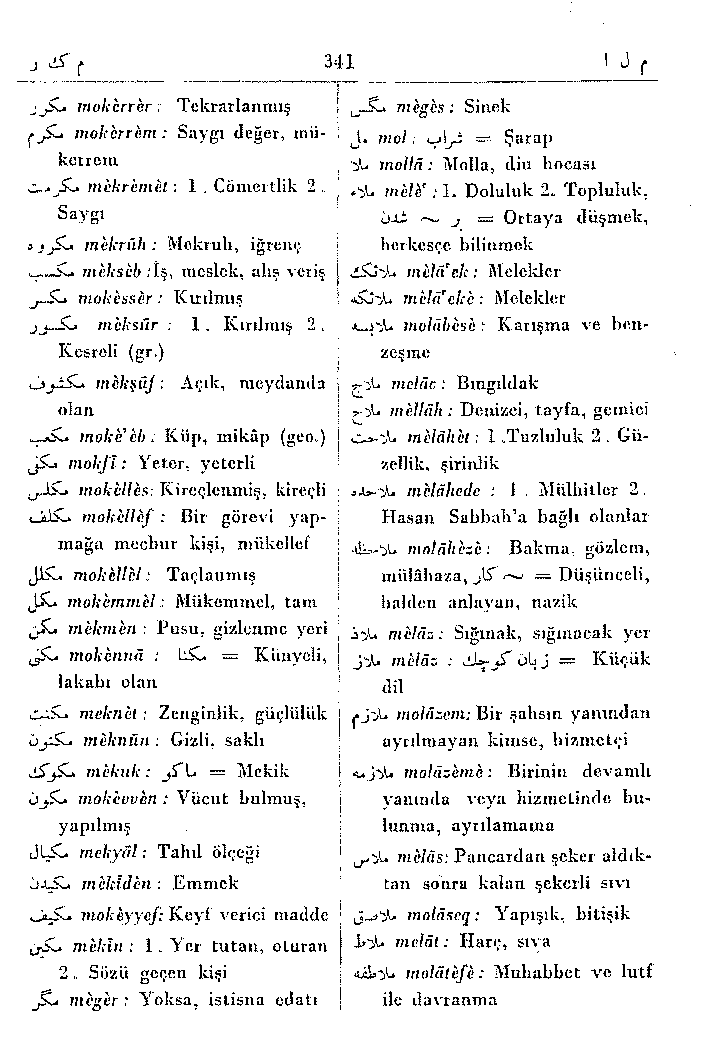 م ك ر 341 م ل ا
مكرر mokèrrèr : Tekrarlanmış
مكرم mokèrrèm : Saygı değer, mü-
kerrem
مكرمت mèkrèmèt : 1 . Cömertlik 2 .
Saygı
مكروه mèkrūh : Mekruh, iğrenç
مكسب mèksèb :İş, meslek, alış veriş
مكسر mokèssèr : Kırılmış
مكسور mèksūr : 1 . Kırılmış 2 .
Kesreli (gr.)
مكشوف mèkşūf : Açık, meydanda
olan
مكعب mokè'èb : Küp, mikâp (geo.)
مكفى mokfī : Yeter, yeterli
مكلس mokèllès: Kireçlenmiş, kireçli
مكلف mokèllèf : Bir görevi yap-
mağa mecbur kişi, mükellef
مكلل mokèllèl : Taçlanmış
مكمل mokèmmèl : Mükemmel, tam
مكمن mèkmèn : Pusu, gizlenme yeri
مكنى mokènnā : مكنا = Künyeli,
lakabı olan
مكنت meknèt : Zenginlik, güçlülük
مكنون mèknūn : Gizli, saklı
مكوك mèkuk : ماكو = Mekik
مكون mokèvvèn : Vücut bulmuş,
yapılmış
مكيال mekyāl : Tahıl ölçeği
مكيدن mèkīdèn : Emmek
مكيف mokèyyef: Keyf verici madde
مكين mèkīn : 1 . Yer tutan, oturan
2 . Sözü geçen kişi
مگر mègèr : Yoksa, istisna edatı
مگس mègès : Sinek
مل mol : شراب = Şarap
ملا mollā : Molla, din hocası
ملاء mèlè' : 1. Doluluk 2. Topluluk,
شدن ~ ر = Ortaya düşmek,
herkesçe bilinmek
ملائك mèlā'ek : Melekler
ملائكه mèlā'ekè : Melekler
ملابسه molābèsè : Karışma ve ben-
zeşme
ملاج melāc : Bıngıldak
ملاح mèllāh : Denizci, tayfa, gemici
ملاحت mèlāhèt : 1 .Tuzluluk 2 . Gü-
zellik, şirinlik
ملاحده mèlāhede : 1 . Mülhitler 2 .
Hasan Sabbah'a bağlı olanlar
ملاحظه molāhèzè : Bakma, gözlem,
mülâhaza, كار ~ = Düşünceli,
halden anlayan, nazik
ملاذ mèlāz : Sığınak, sığınacak yer
ملاز mèlāz : زبان كوچك = Küçük
dil
ملازم molāzem: Bir şahsın yanından
ayrılmayan kimse, hizmetçi
ملازمه molāzèmè : Birinin devamlı
yanında veya hizmetinde bu-
lunma, ayrılamama
ملاس mèlās: Pancardan şeker aldık-
tan sonra kalan şekerli sıvı
ملاصق molāseq : Yapışık, bitişik
ملاط melāt : Harç, sıva
ملاطفه molātèfè : Muhabbet ve lutf
ile davranma